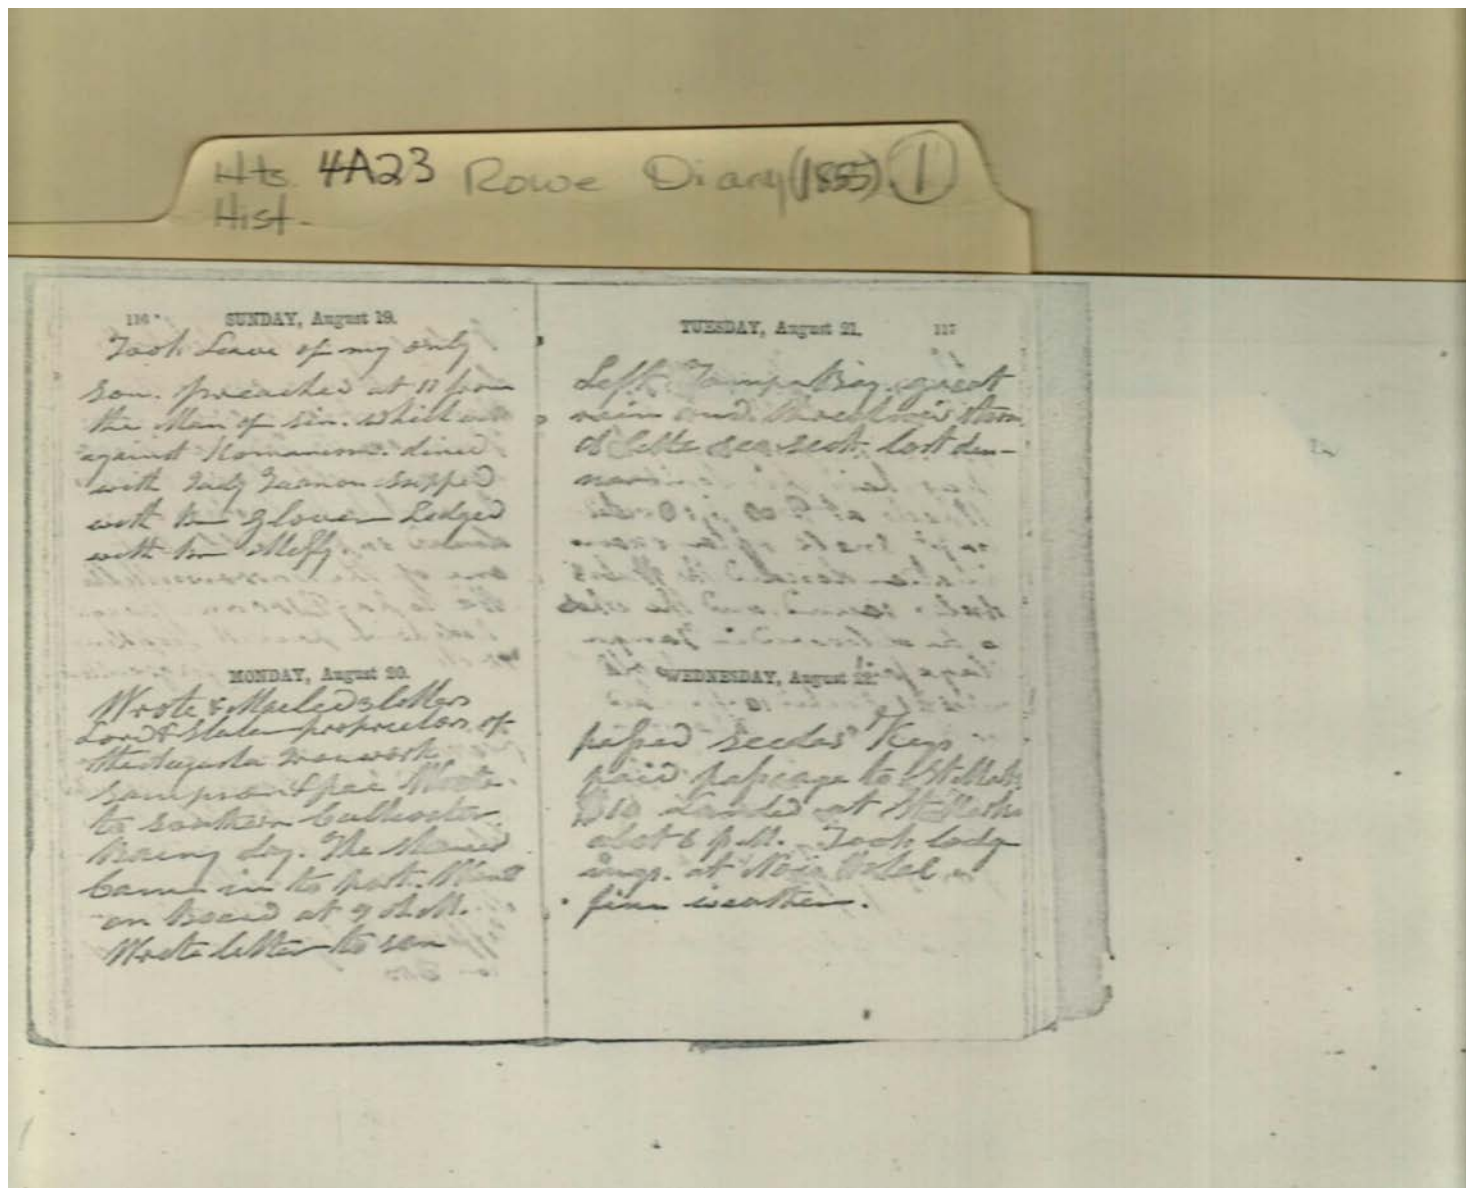 Hts. 4A23 Rowe Diary (1855) 1
Hist.
116 SUNDAY, August 19.
Took Leave of my only
son. preached at 11 from
the Man of sin. which
against Romanism. dined
with Judg supped
with Glover Lodged
with
MONDAY, August 20.
Wrote & Mailed 3 letters
Lord & proprietors of
the Augusta
Wrote
to southern Cultivator
Rainy day. The
Came in to port. Went
on Board at 9
Wrote letter to son
TUESDAY, August 21. 117
Left Tampa Bay. great
rain and storm
sea sick lost
WEDNESDAY, August 22.
passed Keys
paid passage to St. Marks
$10 Landed at St. Marks
abot 6 p.M. Took lodg
ings. at Hotel
fine weather.